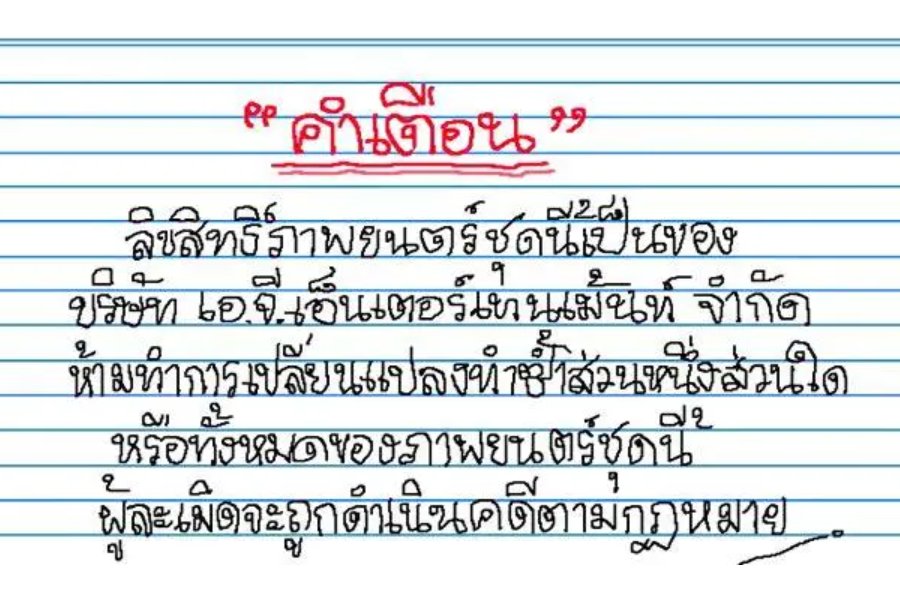 "คำเตือน"
ลิขสิทธิ์ภาพยนตร์ชุดนี้เป็นของ
บริษัท เอ.จี.เอ็นเตอร์เทนเม้นท์ จำกัด
ห้ามทำการเปลี่ยนแปลงทำซ้ำส่วนหนึ่งส่วนใด
หรือทั้งหมดของภาพยนตร์ชุดนี้
ผู้ละเมิดจะถูกดำเนินคดีตามกฎหมาย